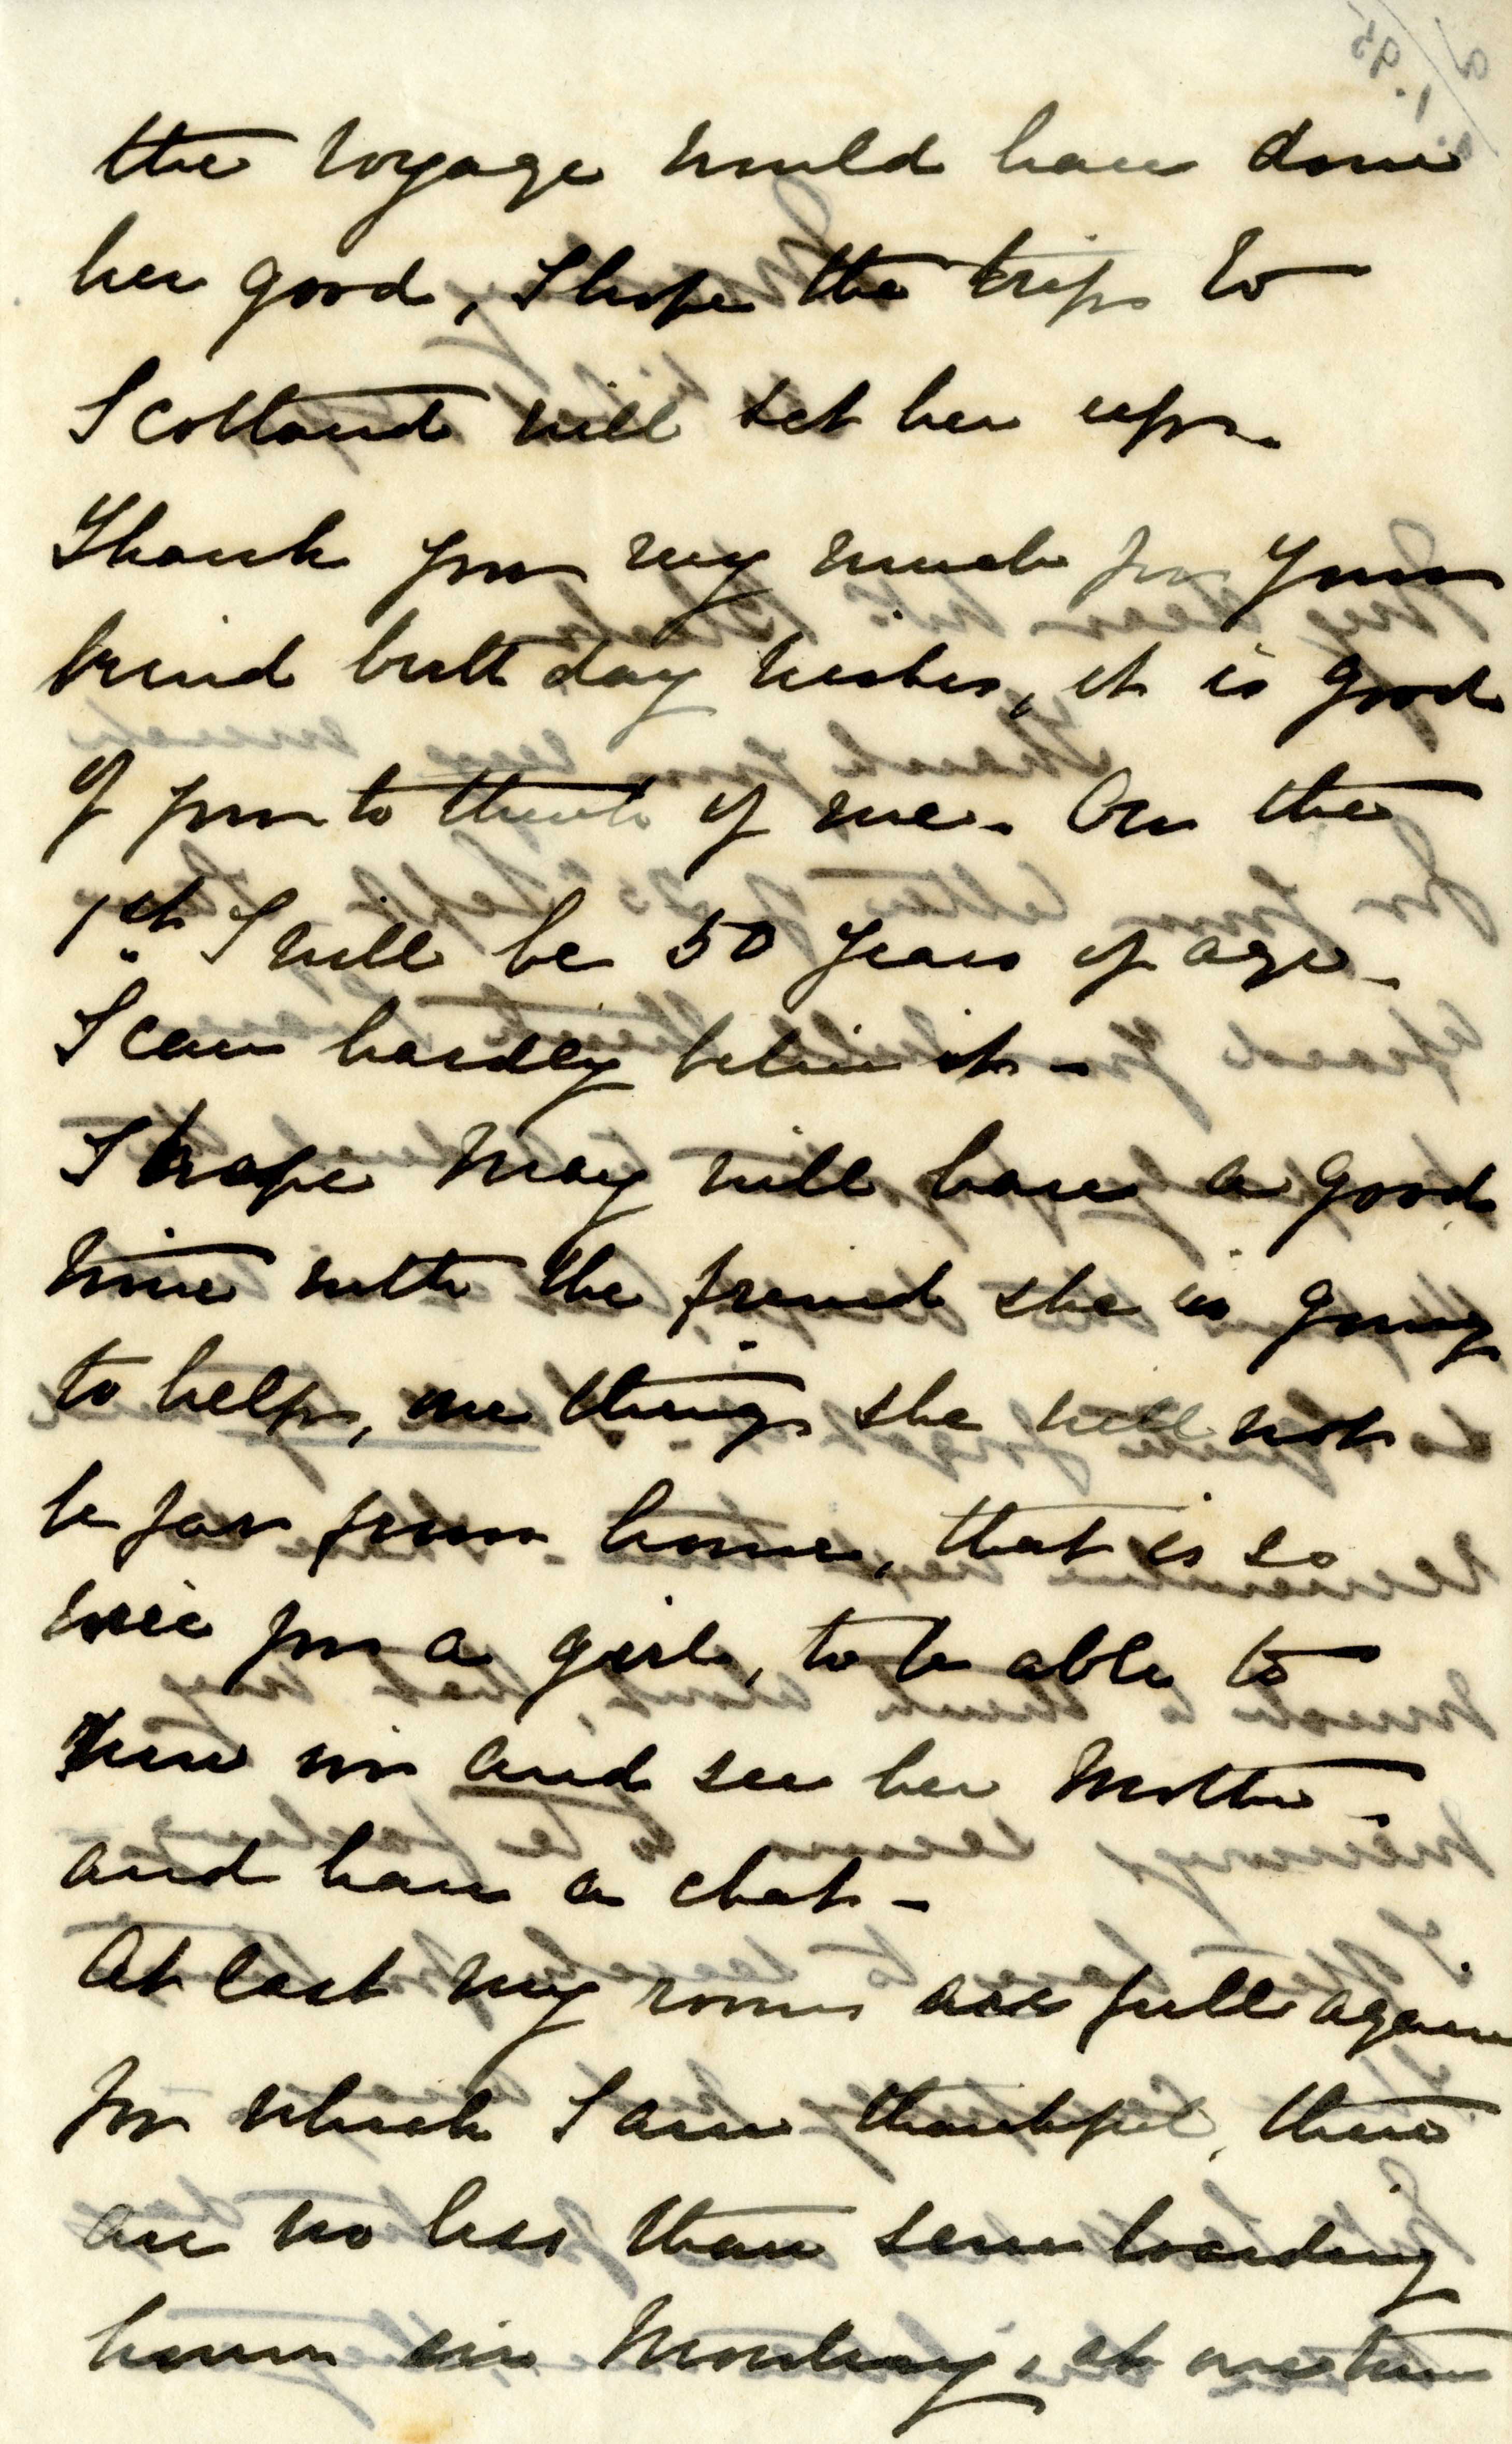 the voyage would have done
her good, I hope the trip to
Scotland will set her up.
Thank you very much for your
kind birthday wishes, it is good
of you to think of me. On the
1st I will be 50 years of age.
I can hardly believe it -
I hope May will have a good
time with the friend she is going
to help, one thing she will not
be far from home, that is so
nice for a girl, to be able to
run in and see her Mother.
and have a chat -
At last my rooms are full again
for which I am thankful, there
are no less than seven boarding
houses in , at one time